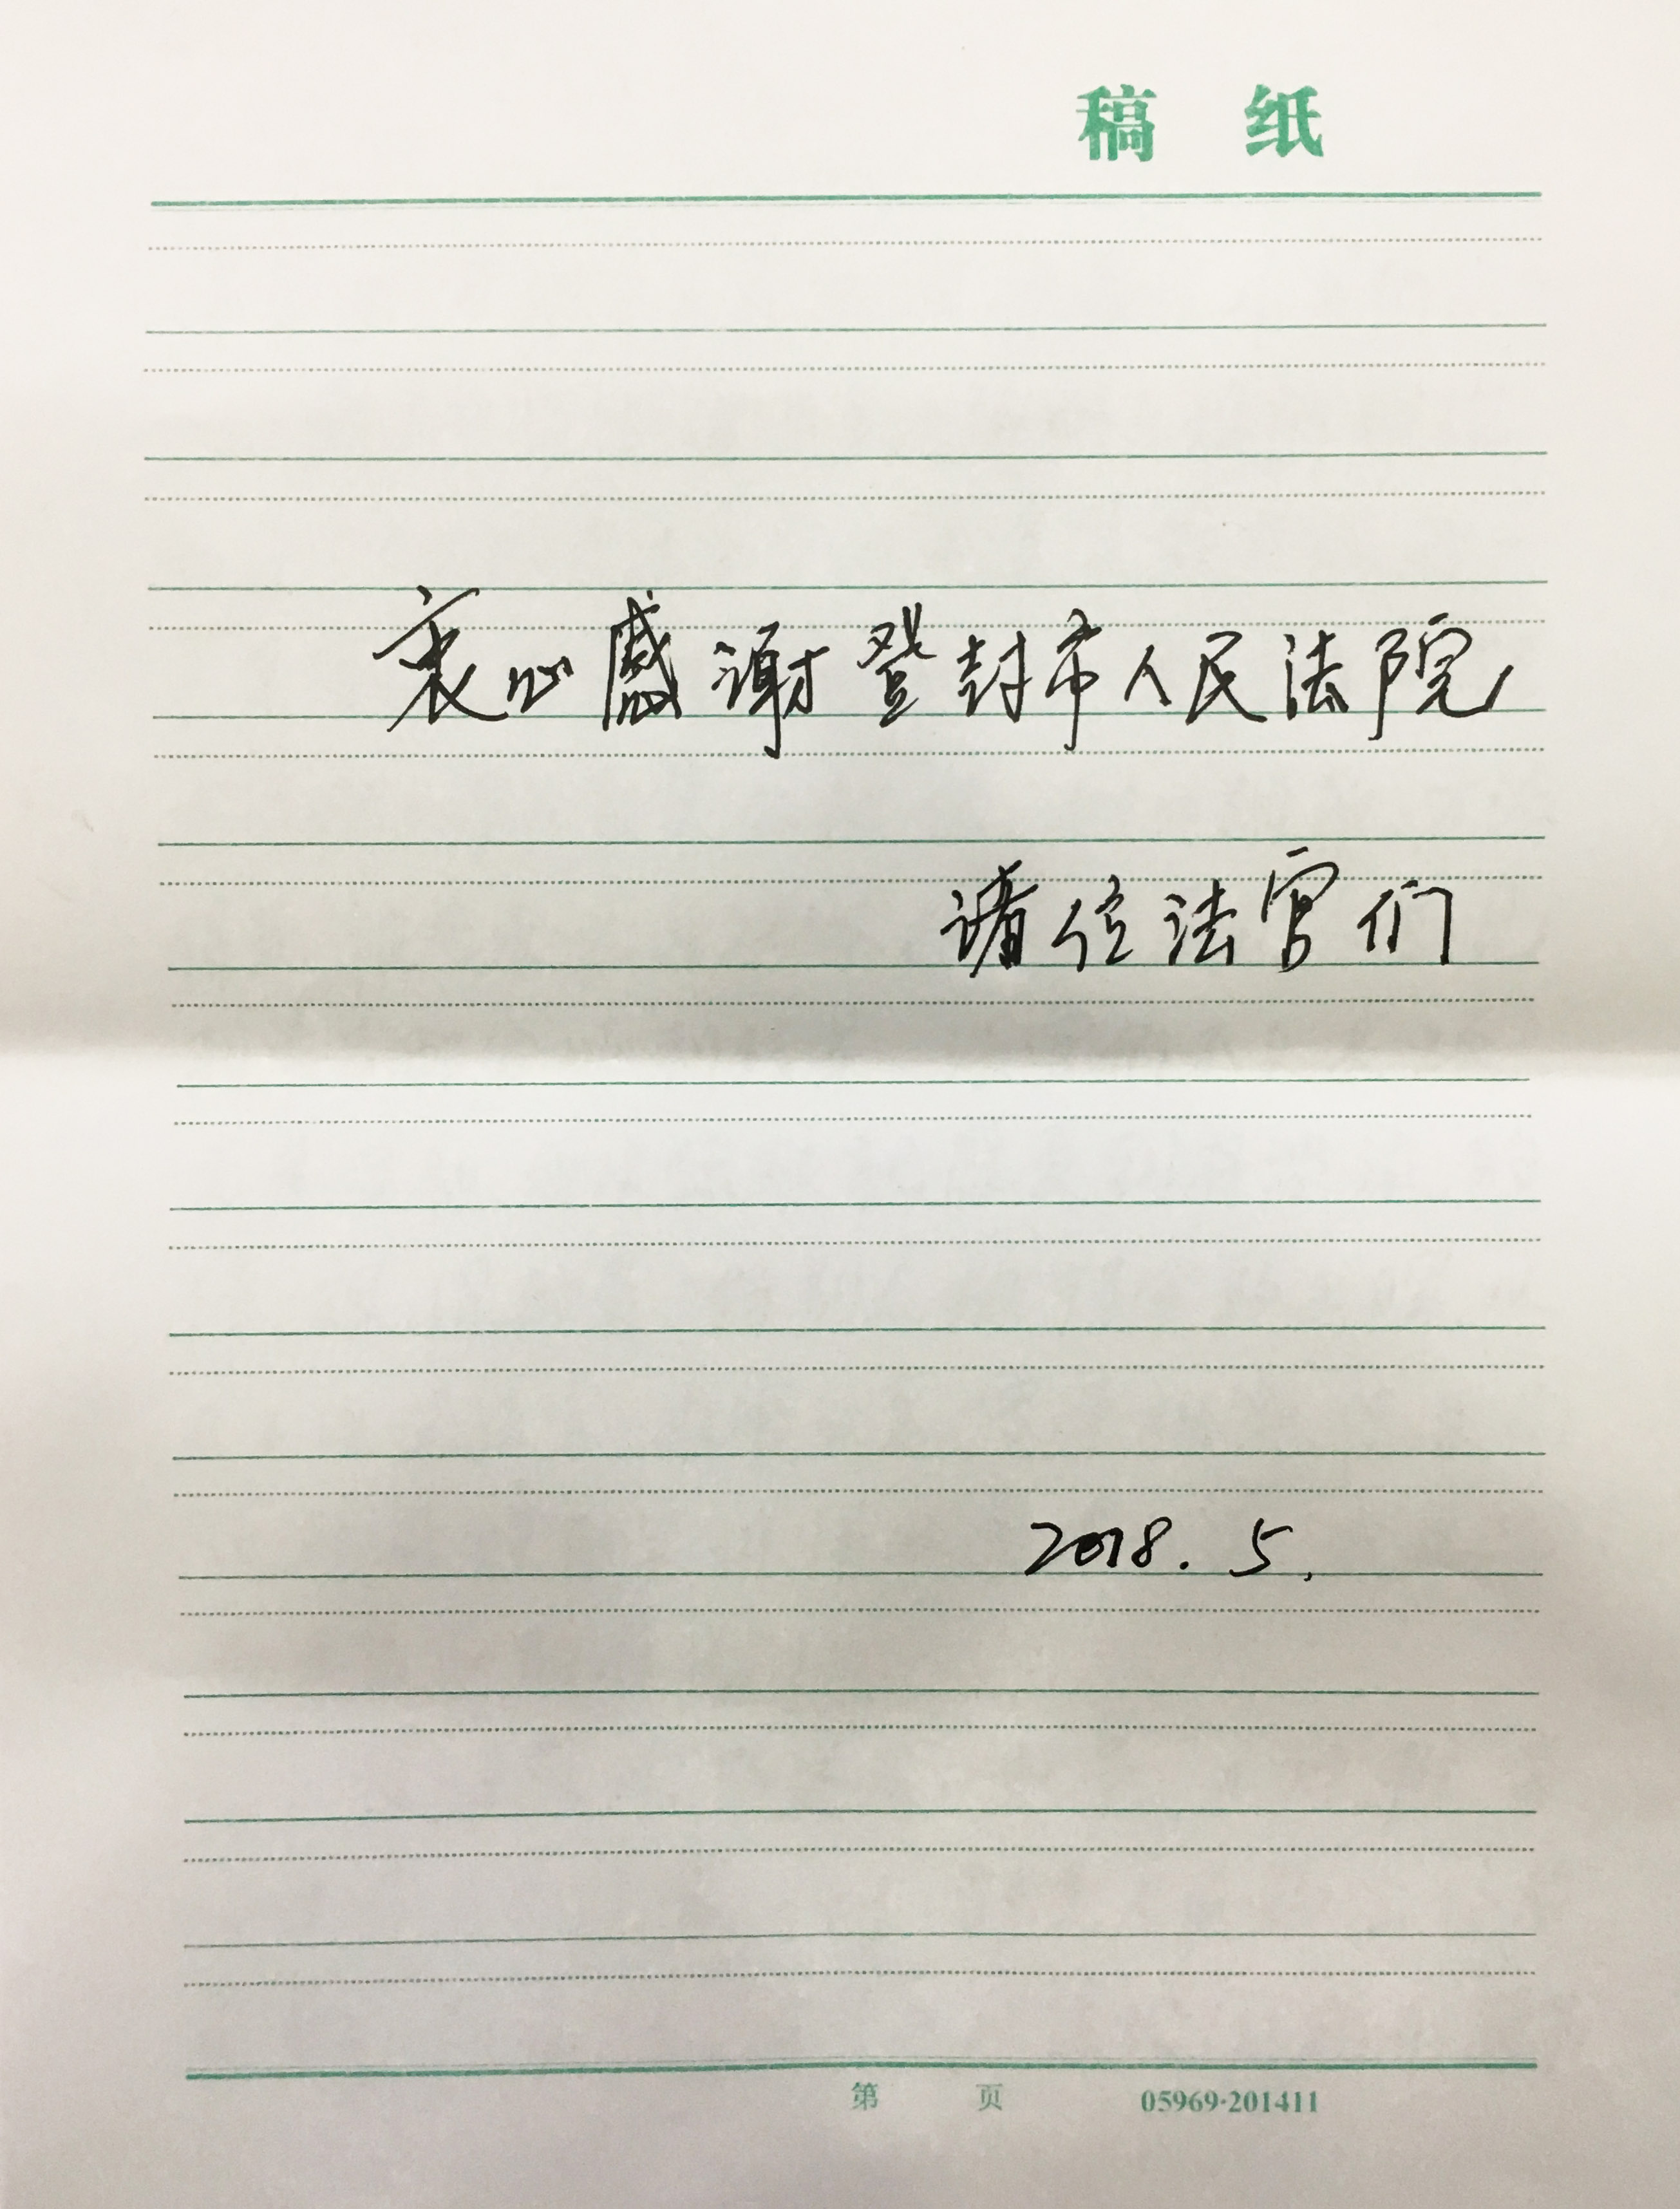 稿 纸
衷心感谢登封市人民法院
诸位法官们
2018.5.
第 页 05969·201411